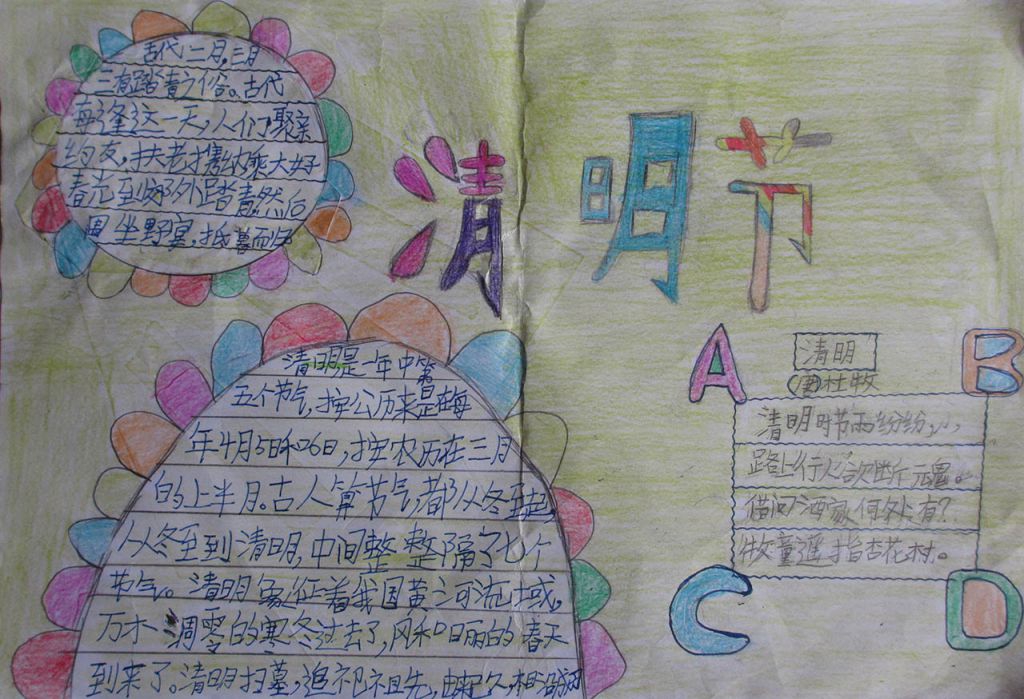 古代二月,三月
三有踏青之俗。古代
每逢这一天,人们聚亲
约友,扶老携幼乘大好
春光到郊外踏青然后
围坐野宴,抵暮而归
清明节
清明是一年中第
五个节气,按公历来是在每
年4月5日和6日,按农历在三月
的上半月。古人算节气,都从冬至起,
从冬至到清明,中间整整隔了七个
节气。清明象征着我国黄河流域,
万木凋零的寒冬过去了,风和日丽的春天
到来了。清明扫墓,追祀祖先,由来久,相沿
A
B
清明
杜牧
清明时节雨纷纷,
路上行人欲断魂。
借问酒家何处有?
牧童遥指杏花村。
C
D